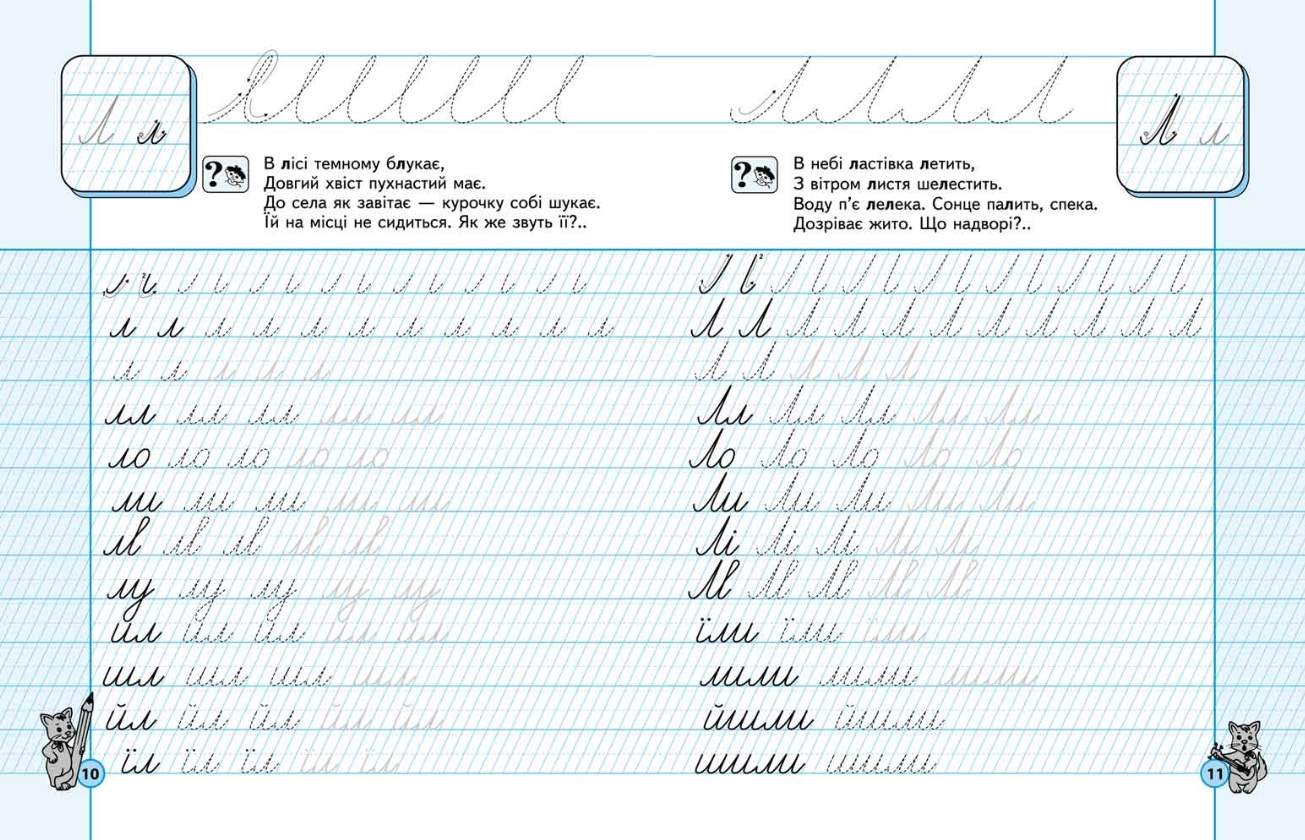 Л л
В лісі темному блукає,
Довгий хвіст пухнастий має.
До села як завітає — курочку собі шукає.
Їй на місці не сидиться. Як же звуть її?..
л л л л л л л л л л л
л л л л л
лл лл лл лл лл
ло ло ло ло ло
ли ли ли ли ли
лу лу лу лу лу
ил ил ил ил ил
шл шл шл шл
йл йл йл йл йл
їл їл їл їл їл
10
Л л
В небі ластівка летить,
З вітром листя шелестить.
Воду п’є лелека. Сонце палить, спека.
Дозріває жито. Що надворі?..
Л Л Л Л Л Л Л Л Л Л Л
Л Л Л Л Л
Лл Лл Лл Лл Лл
Ло Ло Ло Ло Ло
Ли Ли Ли Ли Ли
Лі Лі Лі Лі Лі
їли їли їли
мили мили мили
йшли йшли
шили шили
11